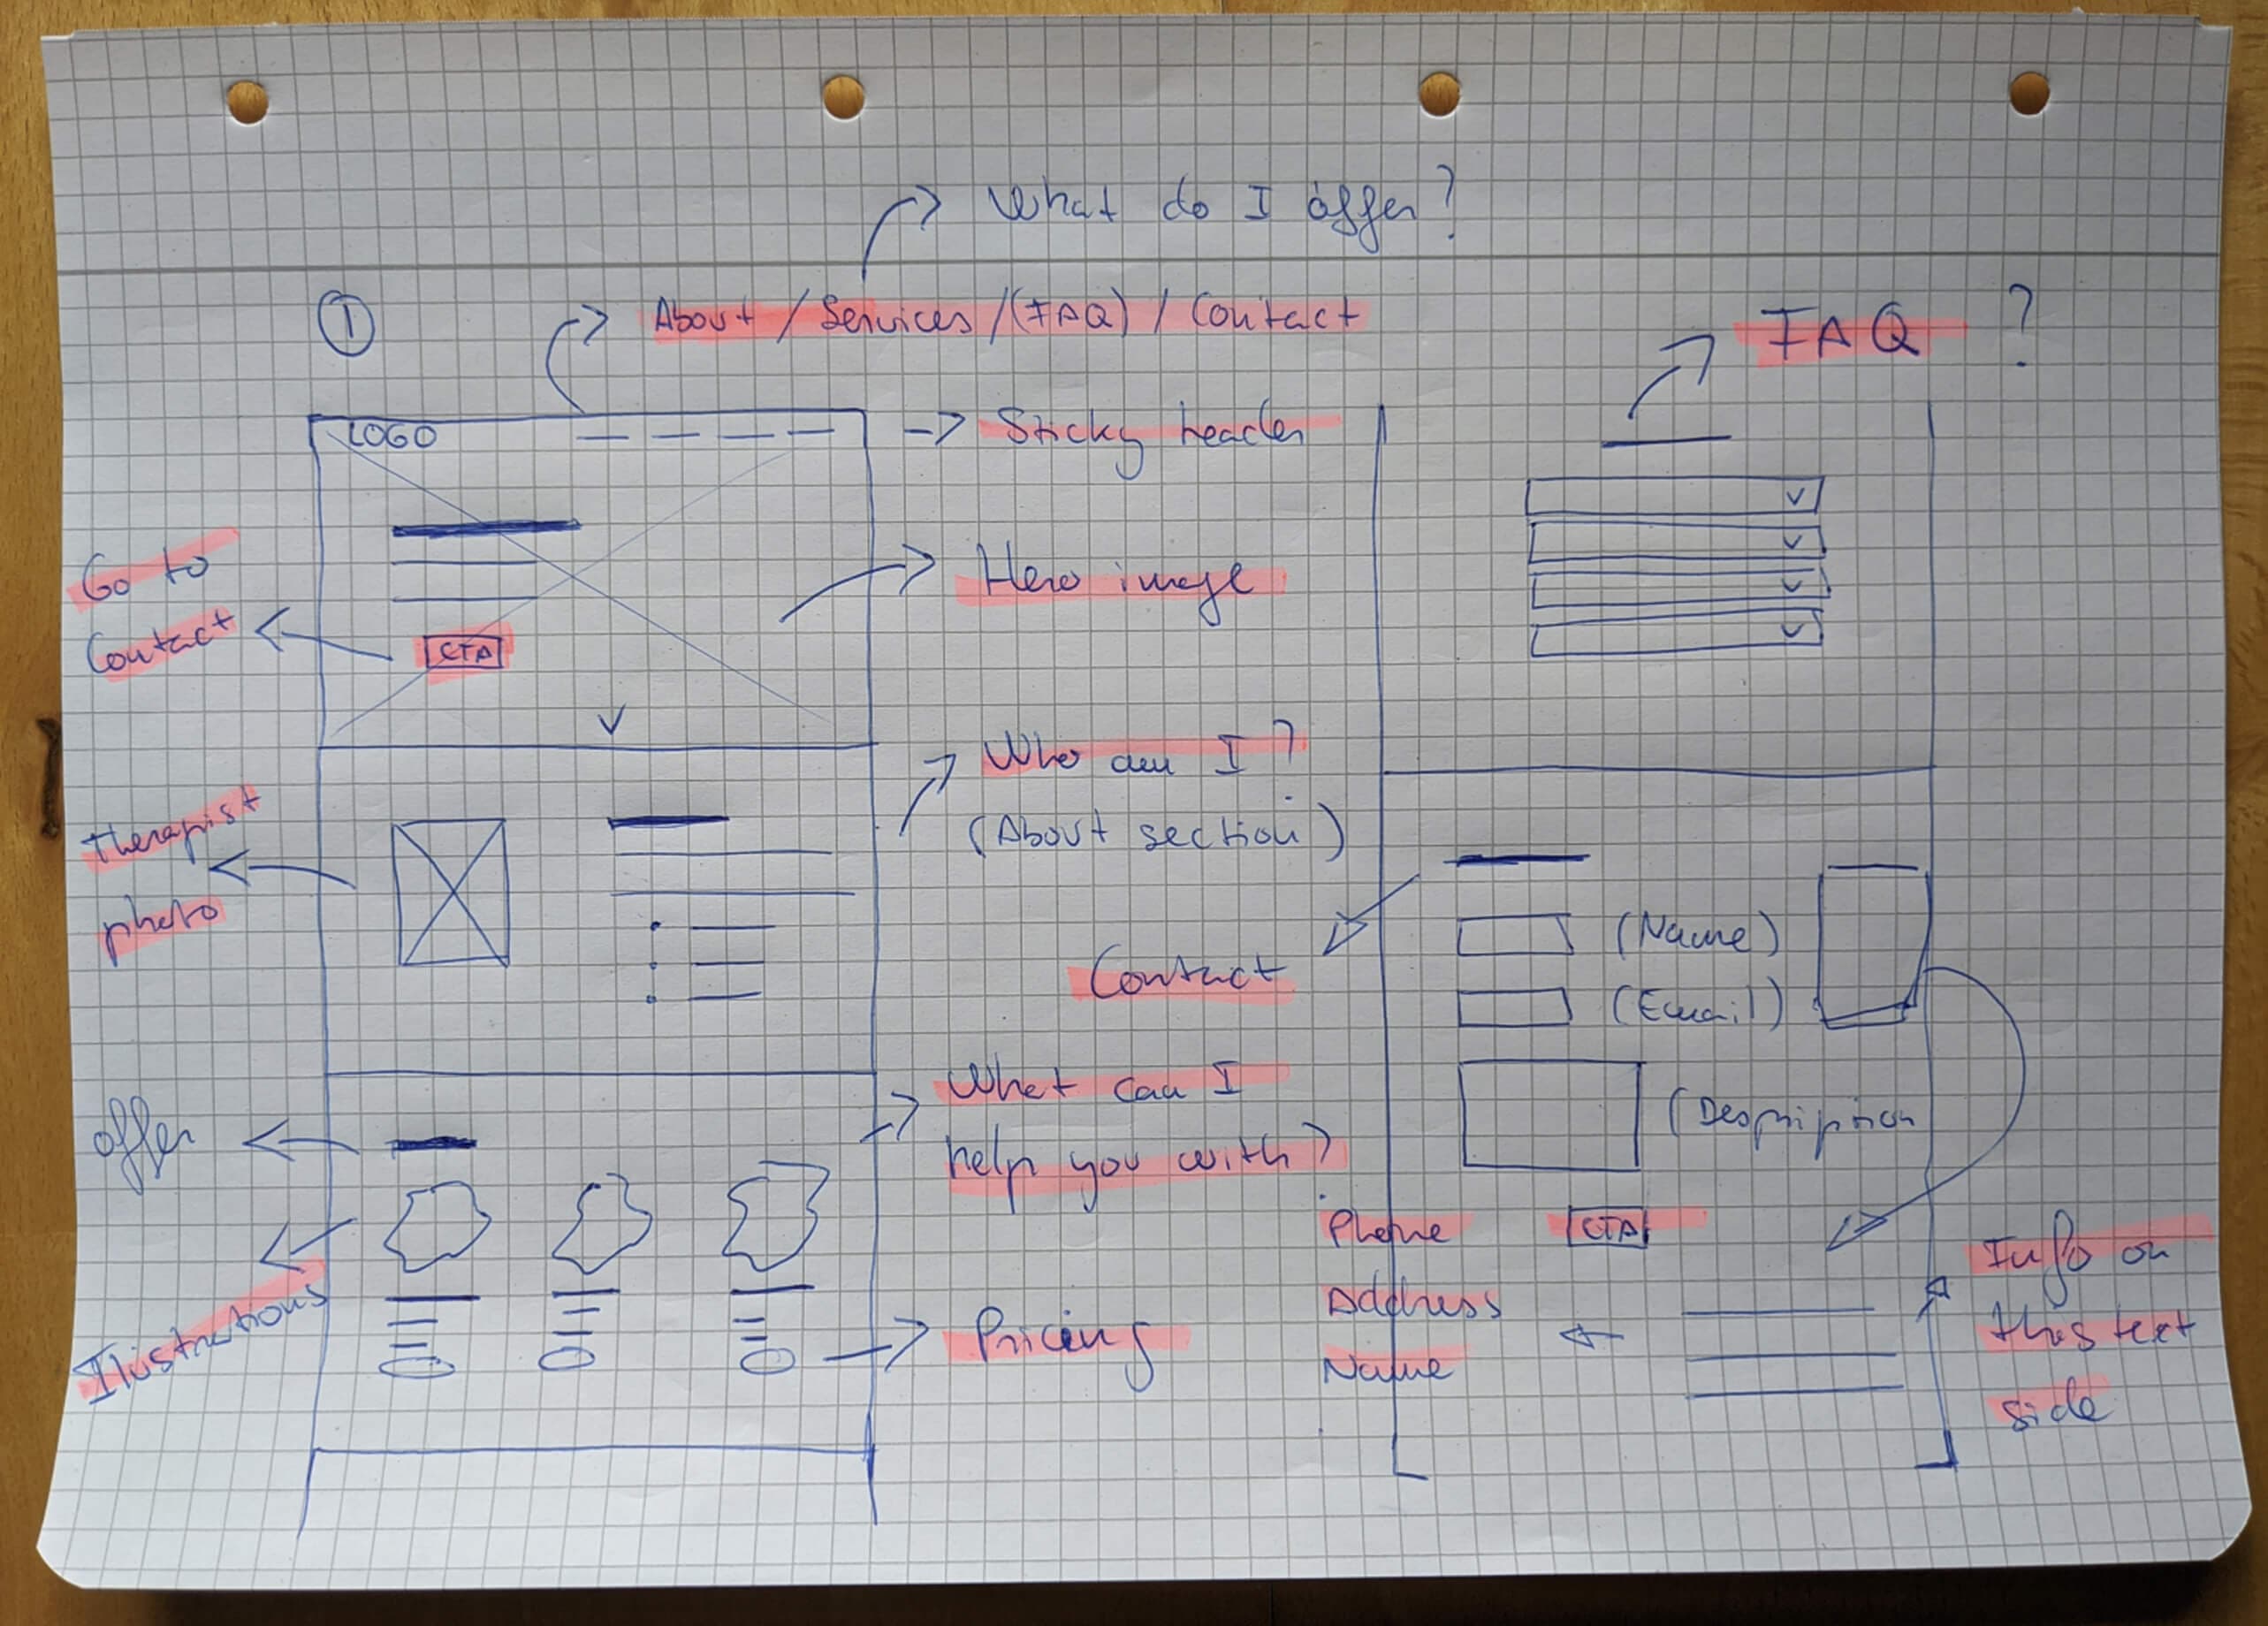 What do I offer?
①
About / Services / (FAQ) / Contact
LOGO
Sticky header
Go to
Contact
Hero image
CTA
Who am I?
(About section)
therapist
photo
What can I
help you with?
offer
Ilustrations
Pricing
FAQ ?
Contact
(Name)
(Email)
(Despription
CTA
Phone
Address
Name
Info on
this text
side